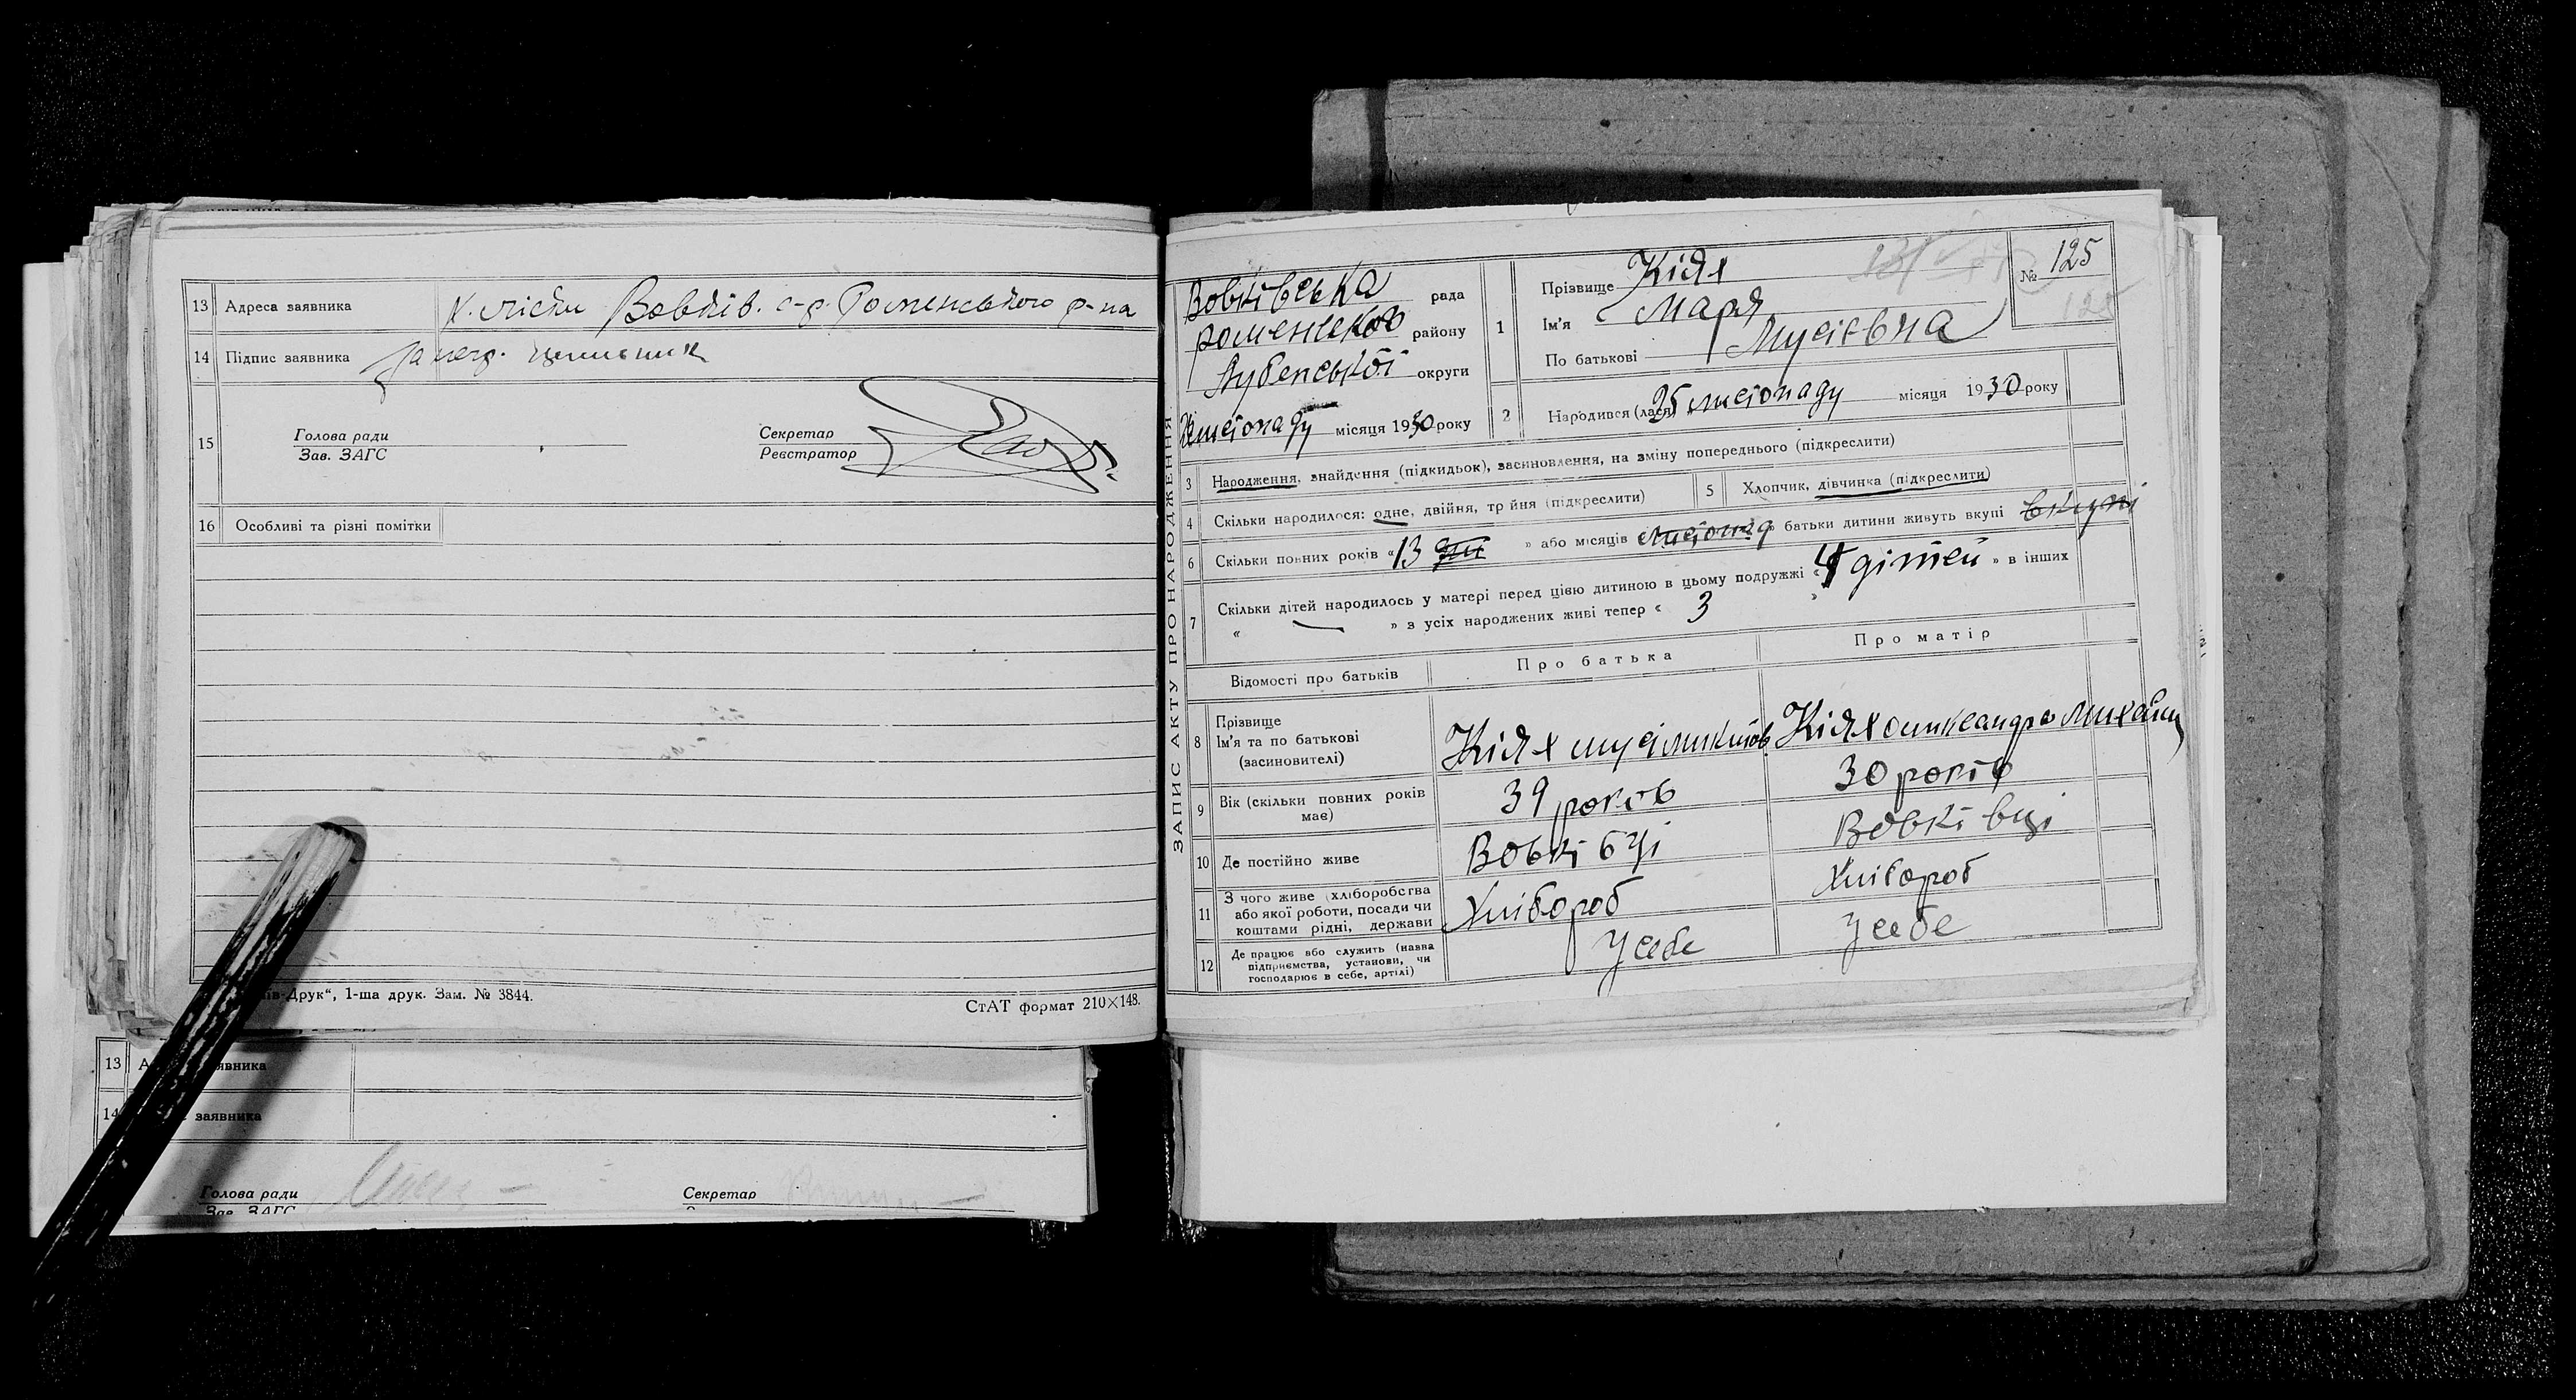 13 Адреса заявника Вовків. с-р. Роменського р-на
14 Підпис заявника
15 Голова ради Секретар
Зав. ЗАГС Реєстратор
16 Особливі та різні помітки
їв-Друк“, 1-ша друк. Зам. № 3844. СтАТ формат 210×148.
13 явника
14 заявника
Голова ради Секретар
Зав. ЗАГС
ЗАПИС АКТУ ПРО НАРОДЖЕННЯ
Вовківська рада
роменського району
Лубенської округи
листопаду місяця 1930 року
1 Прізвище Кіях
Ім'я Марія
По батькові Мусієвна
№ 125
125
2 Народився (лася) 25 листопаду місяця 1930 року
3 Народження, знайдення (підкидьок), засиновлення, на зміну попереднього (підкреслити)
4 Скільки народилося: одне, двійня, трійня (підкреслити) 5 Хлопчик, дівчинка (підкреслити)
6 Скільки повних років « 13 » або місяців листопад батьки дитини живуть вкупі вкупі
7 Скільки дітей народилось у матері перед цією дитиною в цьому подружжі « 4 дітей » в інших
« — » з усіх народжених живі тепер « 3 »
Відомості про батьків Про батька Про матір
8 Прізвище
Ім'я та по батькові
(засиновителі)
Кіях Мусій Микитов. Кіях Олександра Михайл
9 Вік (скільки повних років
має)
39 років 30 років
10 Де постійно живе Вовківці Вовківці
11 З чого живе (хліборобства
або якої роботи, посади чи
коштами рідні, держави
Хлібороб Хлібороб
12 Де працює або служить (назва
підприємства, установи, чи
господарює в себе, артілі)
У себе У себе